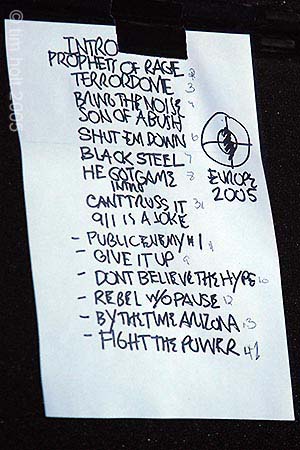 © tim holt 2005
INTRO
PROPHETS OF RAGE 2
TERRORDOME 3
BRING THE NOISE 4
SON OF A BUSH
SHUT EM DOWN 6
BLACK STEEL 7
HE GOT GAME 8
INTRO
CAN'T TRUSS IT 31
911 IS A JOKE
- PUBLIC ENEMY #1 9
- GIVE IT UP 9
- DONT BELIEVE THE HYPE 10
- REBEL W/O PAUSE 12
- BY THE TIME ARIZONA 13
- FIGHT THE POWER 41
EUROPE
2005